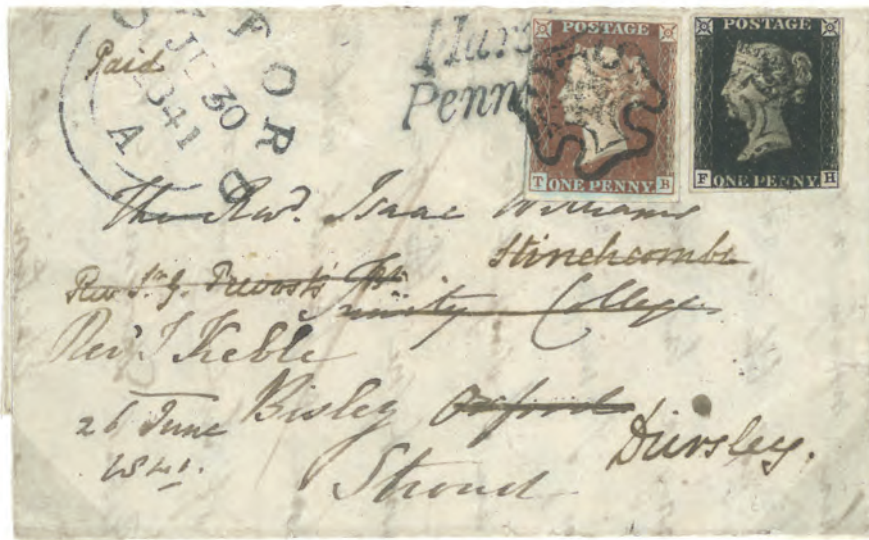 OXFORD
JU 30
1841
A
Paid
Penny
POSTAGE
T ONE PENNY B
POSTAGE
F ONE PENNY H
The Revd. Isaac Williams
Stinchcombe
Rev Sir G. Prevost's Bt
Trinity College
Rev J Keble
26 June Bisley Oxford
1841. Dursley.
Stroud